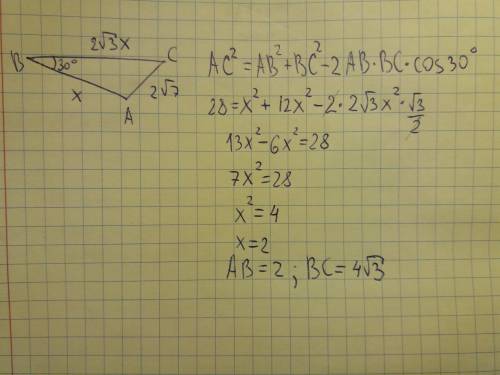 2√3x
B 30° C
x 2√7
A
AC² = AB² + BC² - 2AB·BC·cos30°
28 = x² + 12x² - 2·2√3x²·√3/2
13x² - 6x² = 28
7x² = 28
x² = 4
x = 2
AB = 2 ; BC = 4√3